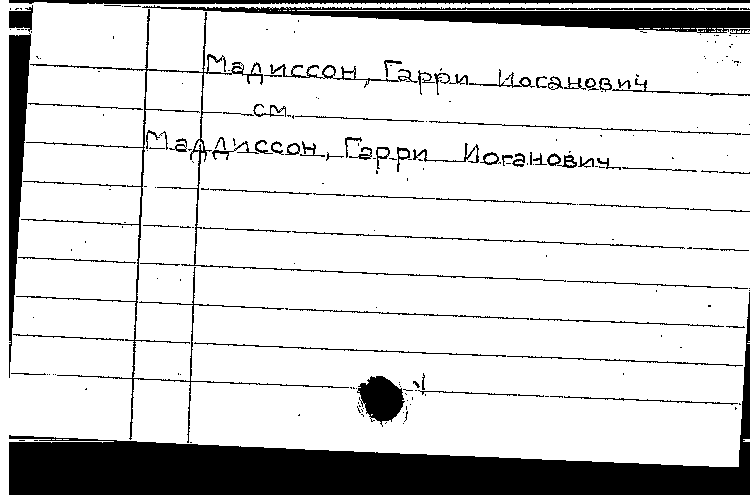 Мадиссон, Гарри Иосанович
см.
Маддиссон, Гарри Иоганович